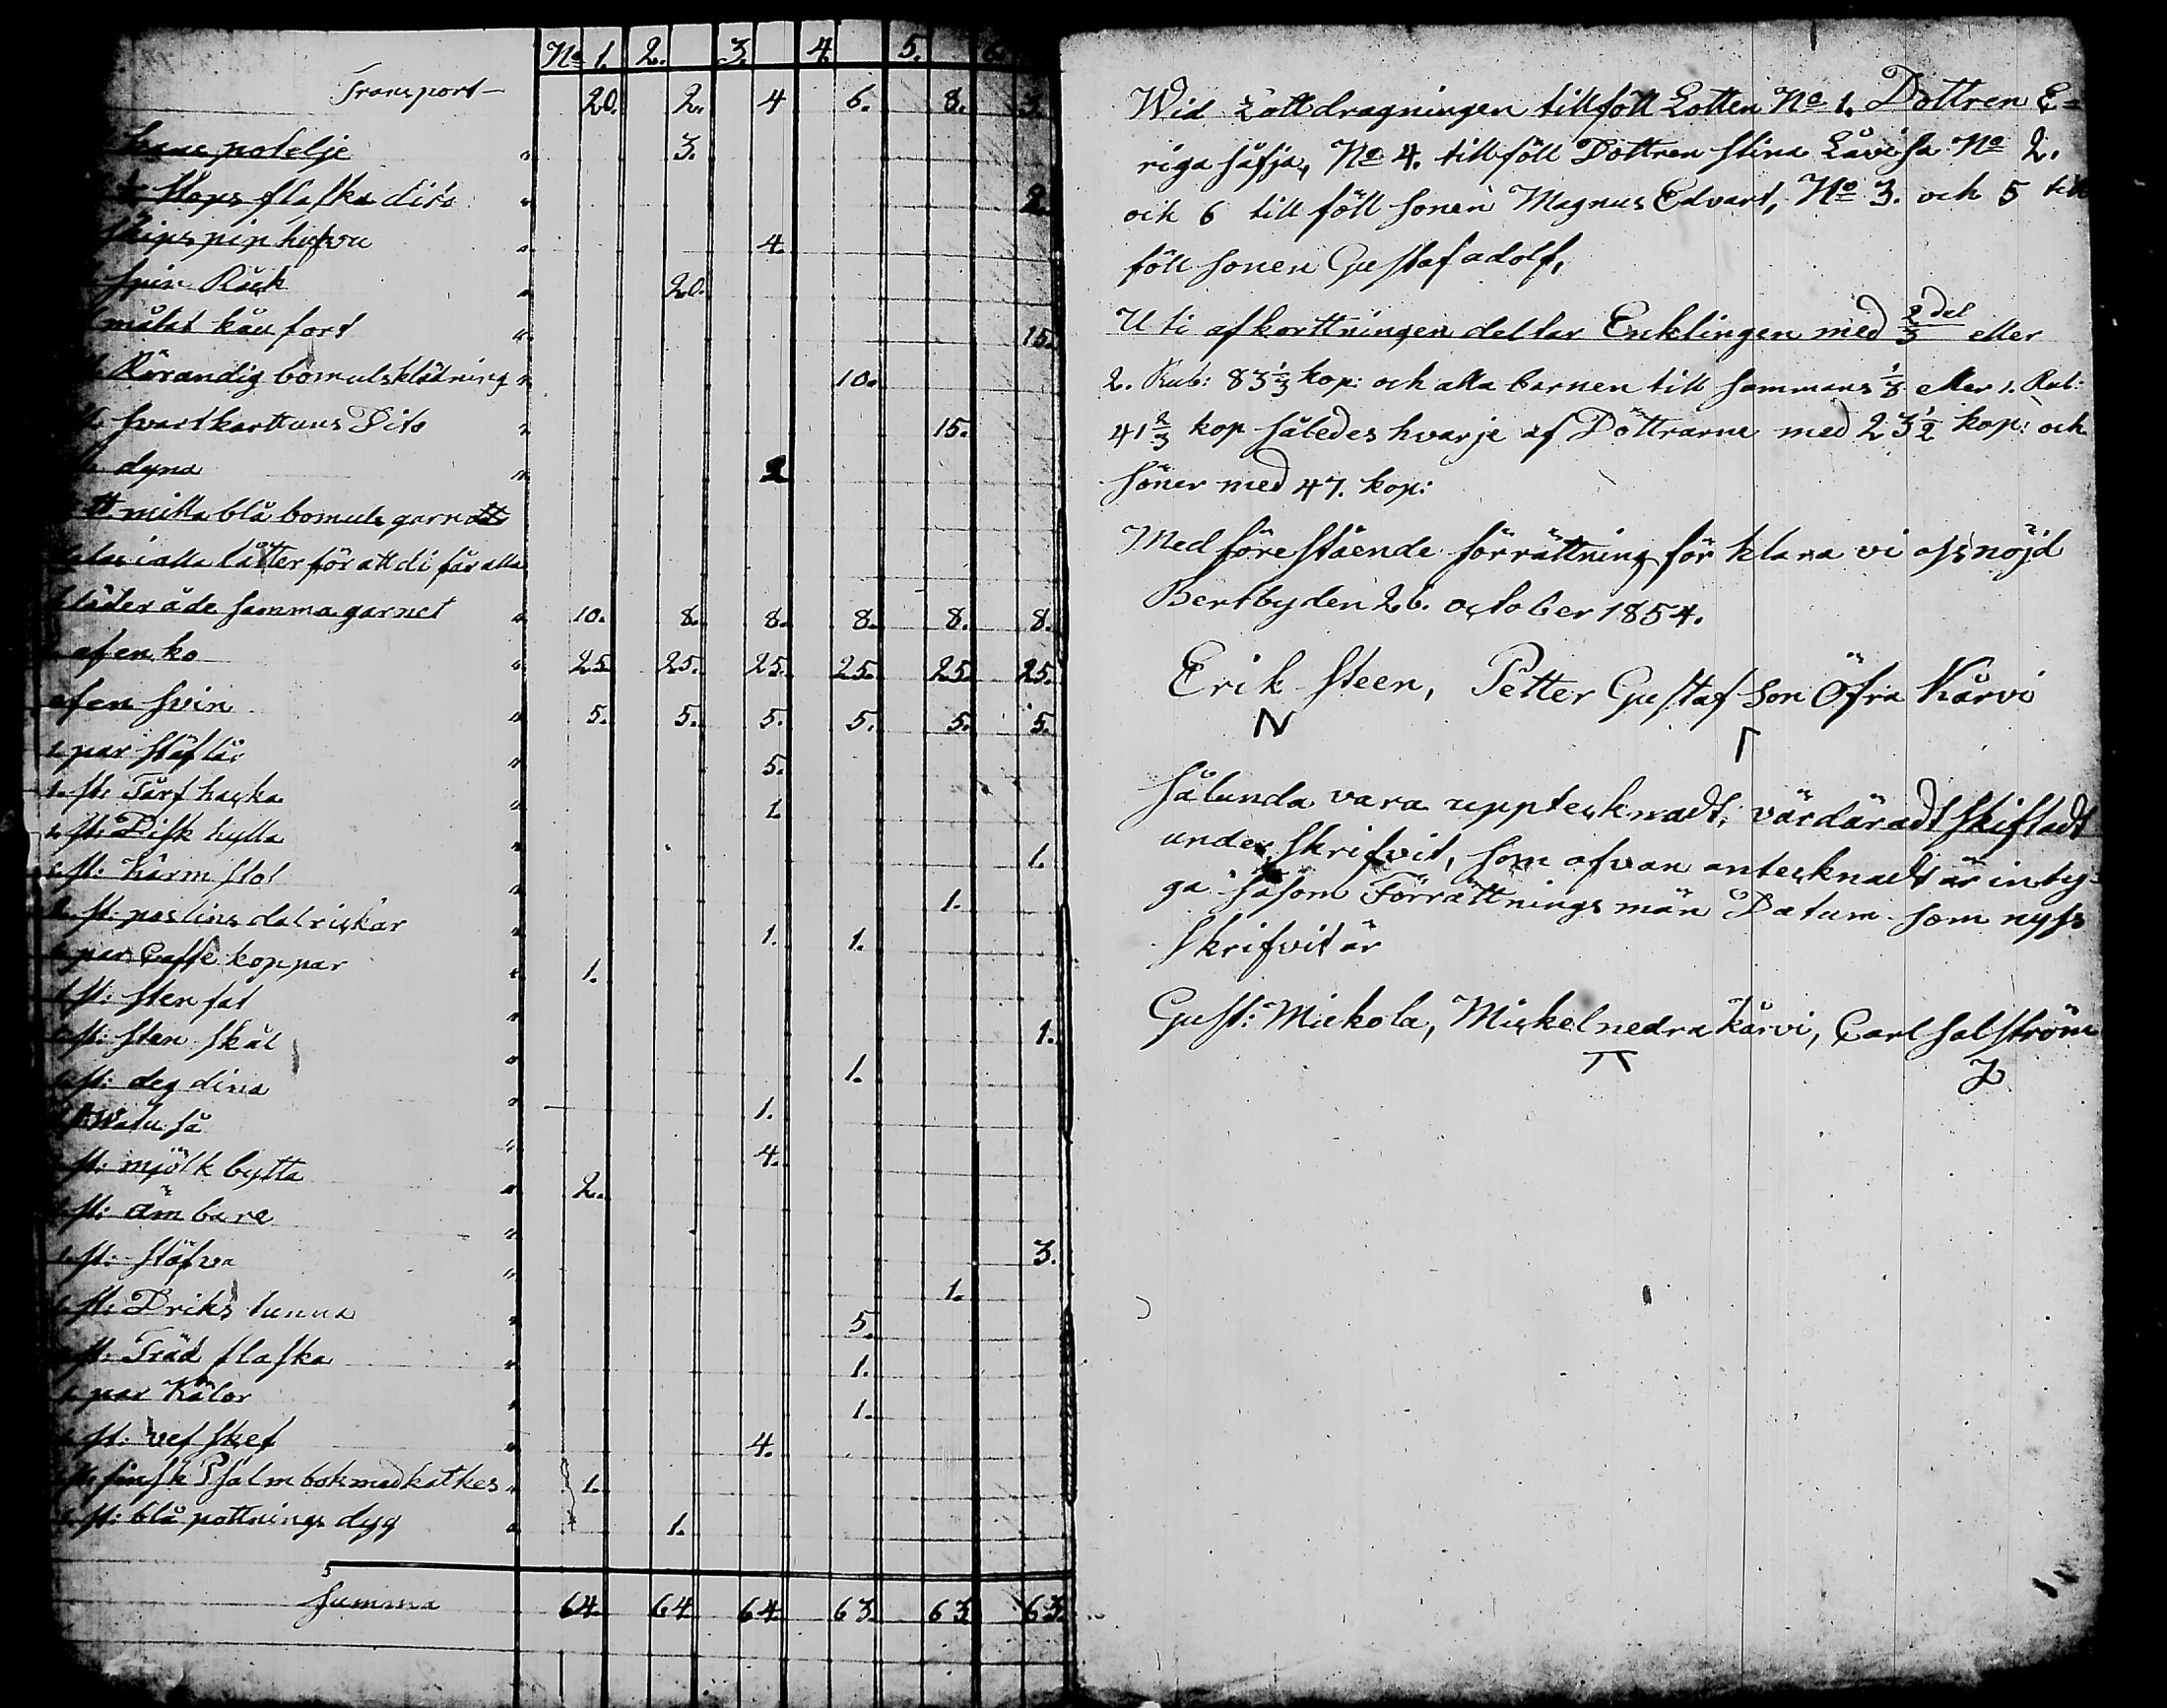 No 1. 2. 3. 4. 5. 6.
Transport 20. 2. 4 6. 8. 3.
potelje " 3.
Stops flaska dito " 2.
" 4.
spin Råck " 20.
målat " 15.
Rörandig bomulsklädning " 10.
svart kattuns Dito " 15.
dyna " 2
milla blå bomuls garn
i alla låtter för att di får alla
samma garnet " 10. 8. 8. 8. 8. 8.
af en ko " 25. 25. 25. 25. 25. 25.
af en svin " 5. 5. 5. 5. 5. 5.
1. par stöflar " 5.
1. st: Tårf hacka " 1.
1. st: Disk hylla " 1.
1. st: Kärm stol " 1.
st: poslins dalrickar " 1. 1.
par Caffe koppar " 1.
1 st: sten fat " 1.
st: sten skål " 1.
st: deg dina " 1.
Watu så " 4.
st: mjölk bytta " 2.
st: ämbare " 3.
1. st: stäfva " 1.
1. st: Driks tunna " 5.
st: Träd flaska " 1.
1. par Kälor " 1.
st: vef skef " 4.
finsk Psalm bok med katkes " 1.
st: blå pottnings dyg " 1.
Summa 64. 64 64. 63. 63 63.
Wid Lottdragningen tillföll Lotten No 1. Dottren E=
riga såfja, No 4. tillföll Dottren stina Låvisa No 2.
och 6 till föll sonen Magnus Edvart, No 3. och 5 till
föll sonen Gustaf adolf,
Uti afkorttningen deltar Enklingen med 2/3 del eller
2. Rub: 83 1/3 kop: och alla barnen till sammans 1/3 eller 1. Rub:
41 2/3 kop således hvarje af Döttrarne med 23 1/2 kop: och
söner med 47. kop:
Med förestående förrättning för klara vi oss nöjd
Bertby den 26. october 1854.
Erik Steen, Petter Gustaf son Öfra Kårvi
Sålunda vara upptecknadt, värdäradt skiftadt
under skrifvit, som ofvan antecknadt är inty-
ga såsom Förrättnings män Datum som nyss
skrifvit är
Gust: Mickola, Mickel nedra Kårvi, Carl salström